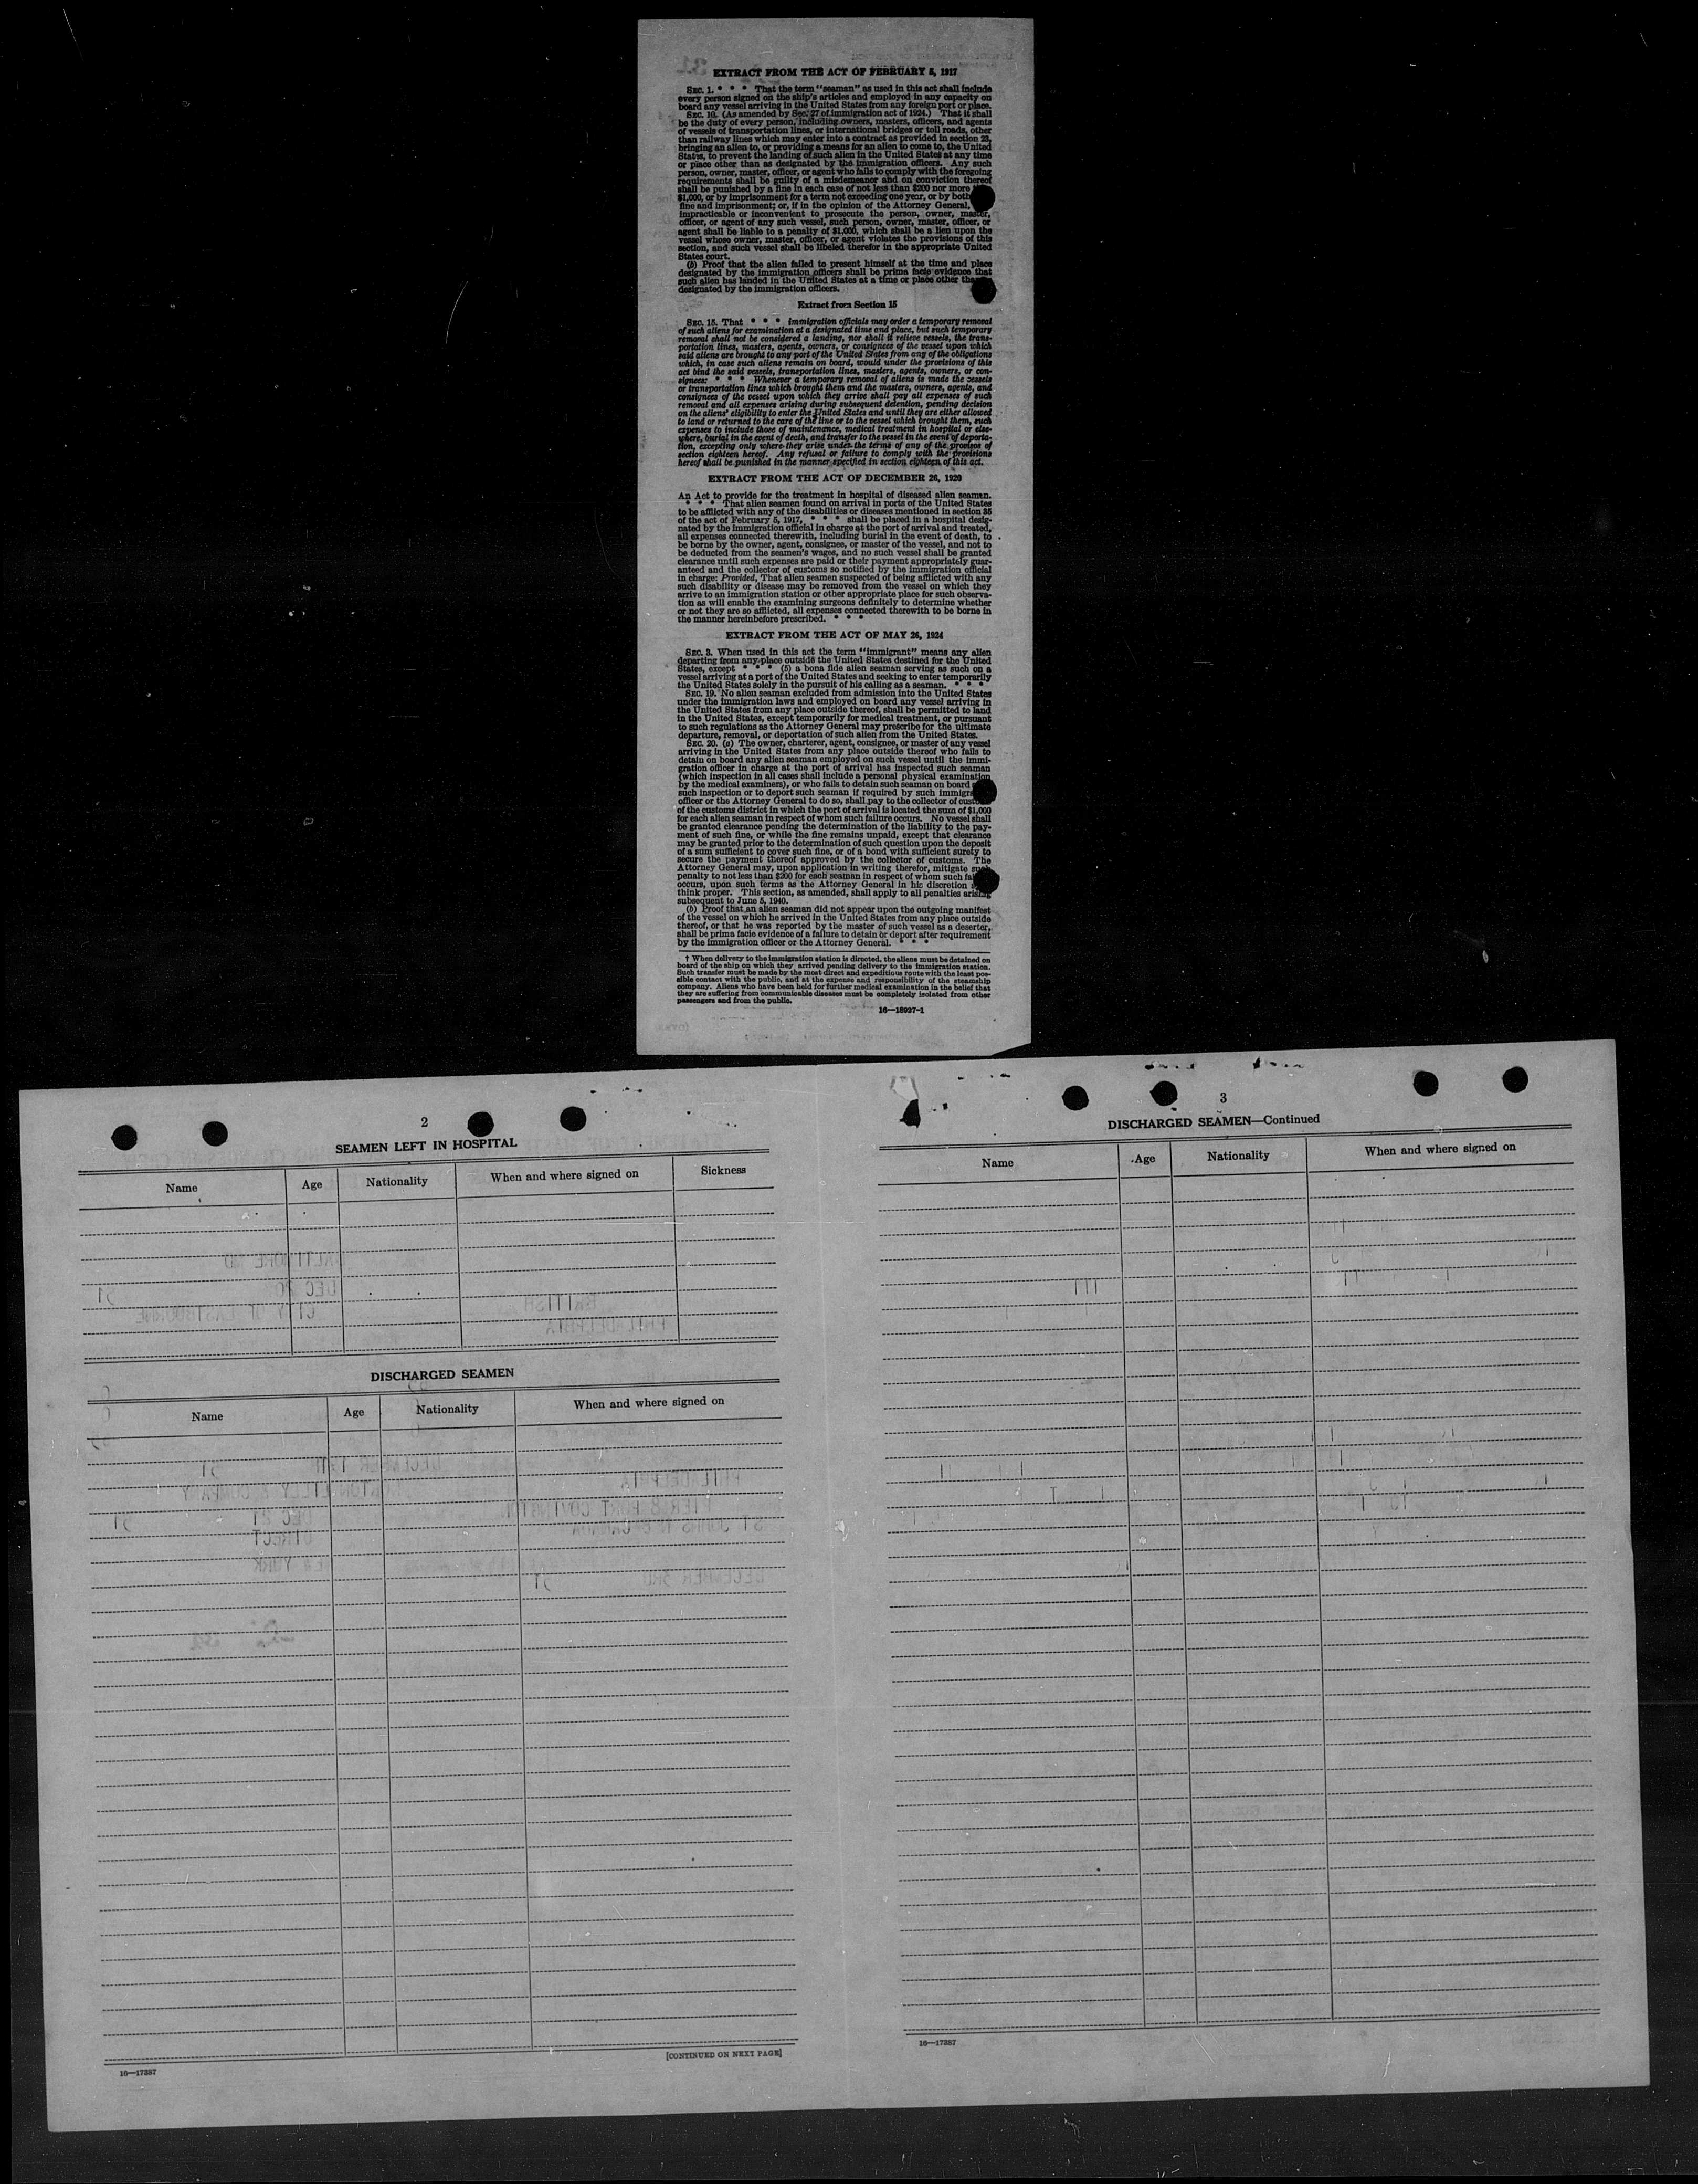 EXTRACT FROM THE ACT OF FEBRUARY 5, 1917
SEC. 1. * * * That the term "seaman" as used in this act shall include
every person signed on the ship's articles and employed in any capacity on
board any vessel arriving in the United States from any foreign port or place.
SEC. 10. (As amended by Sec. 27 of immigration act of 1924.) That it shall
be the duty of every person, including owners, masters, officers, and agents
of vessels of transportation lines, or international bridges or toll roads, other
than railway lines which may enter into a contract as provided in section 23,
bringing an alien to, or providing a means for an alien to come to, the United
States, to prevent the landing of such alien in the United States at any time
or place other than as designated by the immigration officers. Any such
person, owner, master, officer, or agent who fails to comply with the foregoing
requirements shall be guilty of a misdemeanor and on conviction thereof
shall be punished by a fine in each case of not less than $200 nor more
$1,000, or by imprisonment for a term not exceeding one year, or by both
fine and imprisonment; or, if in the opinion of the Attorney General,
impracticable or inconvenient to prosecute the person, owner, master,
officer, or agent of any such vessel, such person, owner, master, officer, or
agent shall be liable to a penalty of $1,000, which shall be a lien upon the
vessel whose owner, master, officer, or agent violates the provisions of this
section, and such vessel shall be libeled therefor in the appropriate United
States court.
(b) Proof that the alien failed to present himself at the time and place
designated by the immigration officers shall be prima facie evidence that
such alien has landed in the United States at a time or place other than
designated by the immigration officers.
Extract from Section 15
SEC. 15. That * * * immigration officials may order a temporary removal
of such aliens for examination at a designated time and place, but such temporary
removal shall not be considered a landing, nor shall it relieve vessels, the trans-
portation lines, masters, agents, owners, or consignees of the vessel upon which
said aliens are brought to any port of the United States from any of the obligations
which, in case such aliens remain on board, would under the provisions of this
act bind the said vessels, transportation lines, masters, agents, owners, or con-
signees: * * * Whenever a temporary removal of aliens is made the vessels
or transportation lines which brought them and the masters, owners, agents, and
consignees of the vessel upon which they arrive shall pay all expenses of such
removal and all expenses arising during subsequent detention, pending decision
on the aliens' eligibility to enter the United States and until they are either allowed
to land or returned to the care of the line or to the vessel which brought them, such
expenses to include those of maintenance, medical treatment in hospital or else-
where, burial in the event of death, and transfer to the vessel in the event of deporta-
tion, excepting only where they arise under the terms of any of the provisos of
section eighteen hereof. Any refusal or failure to comply with the provisions
hereof shall be punished in the manner specified in section eighteen of this act.
EXTRACT FROM THE ACT OF DECEMBER 26, 1920
An Act to provide for the treatment in hospital of diseased alien seamen.
* * * That alien seamen found on arrival in ports of the United States
to be afflicted with any of the disabilities or diseases mentioned in section 35
of the act of February 5, 1917, * * * shall be placed in a hospital desig-
nated by the immigration official in charge at the port of arrival and treated,
all expenses connected therewith, including burial in the event of death, to
be borne by the owner, agent, consignee, or master of the vessel, and not to
be deducted from the seamen's wages, and no such vessel shall be granted
clearance until such expenses are paid or their payment appropriately guar-
anteed and the collector of customs so notified by the immigration official
in charge: Provided, That alien seamen suspected of being afflicted with any
such disability or disease may be removed from the vessel on which they
arrive to an immigration station or other appropriate place for such observa-
tion as will enable the examining surgeons definitely to determine whether
or not they are so afflicted, all expenses connected therewith to be borne in
the manner hereinbefore prescribed. * * *
EXTRACT FROM THE ACT OF MAY 26, 1924
SEC. 3. When used in this act the term "immigrant" means any alien
departing from any place outside the United States destined for the United
States, except * * * (5) a bona fide alien seaman serving as such on a
vessel arriving at a port of the United States and seeking to enter temporarily
the United States solely in the pursuit of his calling as a seaman. * * *
SEC. 19. No alien seaman excluded from admission into the United States
under the immigration laws and employed on board any vessel arriving in
the United States from any place outside thereof, shall be permitted to land
in the United States, except temporarily for medical treatment, or pursuant
to such regulations as the Attorney General may prescribe for the ultimate
departure, removal, or deportation of such alien from the United States.
SEC. 20. (a) The owner, charterer, agent, consignee, or master of any vessel
arriving in the United States from any place outside thereof who fails to
detain on board any alien seaman employed on such vessel until the immi-
gration officer in charge at the port of arrival has inspected such seaman
(which inspection in all cases shall include a personal physical examination
by the medical examiners), or who fails to detain such seaman on board
such inspection or to deport such seaman if required by such
officer or the Attorney General to do so, shall pay to the collector of customs
of the customs district in which the port of arrival is located the sum of $1,000
for each alien seaman in respect of whom such failure occurs. No vessel shall
be granted clearance pending the determination of the liability to the pay-
ment of such fine, or while the fine remains unpaid, except that clearance
may be granted prior to the determination of such question upon the deposit
of a sum sufficient to cover such fine, or of a bond with sufficient surety to
secure the payment thereof approved by the collector of customs. The
Attorney General may, upon application in writing therefor, mitigate such
penalty to not less than $200 for each seaman in respect of whom such
occurs, upon such terms as the Attorney General in his discretion
think proper. This section, as amended, shall apply to all penalties arising
subsequent to June 5, 1940.
(b) Proof that an alien seaman did not appear upon the outgoing manifest
of the vessel on which he arrived in the United States from any place outside
thereof, or that he was reported by the master of such vessel as a deserter,
shall be prima facie evidence of a failure to detain or deport after requirement
by the immigration officer or the Attorney General. * * *
† When delivery to the immigration station is directed, the aliens must be detained on
board of the ship on which they arrived pending delivery to the immigration station.
Such transfer must be made by the most direct and expeditious route with the least pos-
sible contact with the public, and at the expense and responsibility of the steamship
company. Aliens who have been held for further medical examination in the belief that
they are suffering from communicable diseases must be completely isolated from other
passengers and from the public.
16—18927-1
2
SEAMEN LEFT IN HOSPITAL
Name Age Nationality When and where signed on Sickness
DISCHARGED SEAMEN
Name Age Nationality When and where signed on
[CONTINUED ON NEXT PAGE]
16—17387
3
DISCHARGED SEAMEN—Continued
Name Age Nationality When and where signed on
16—17387